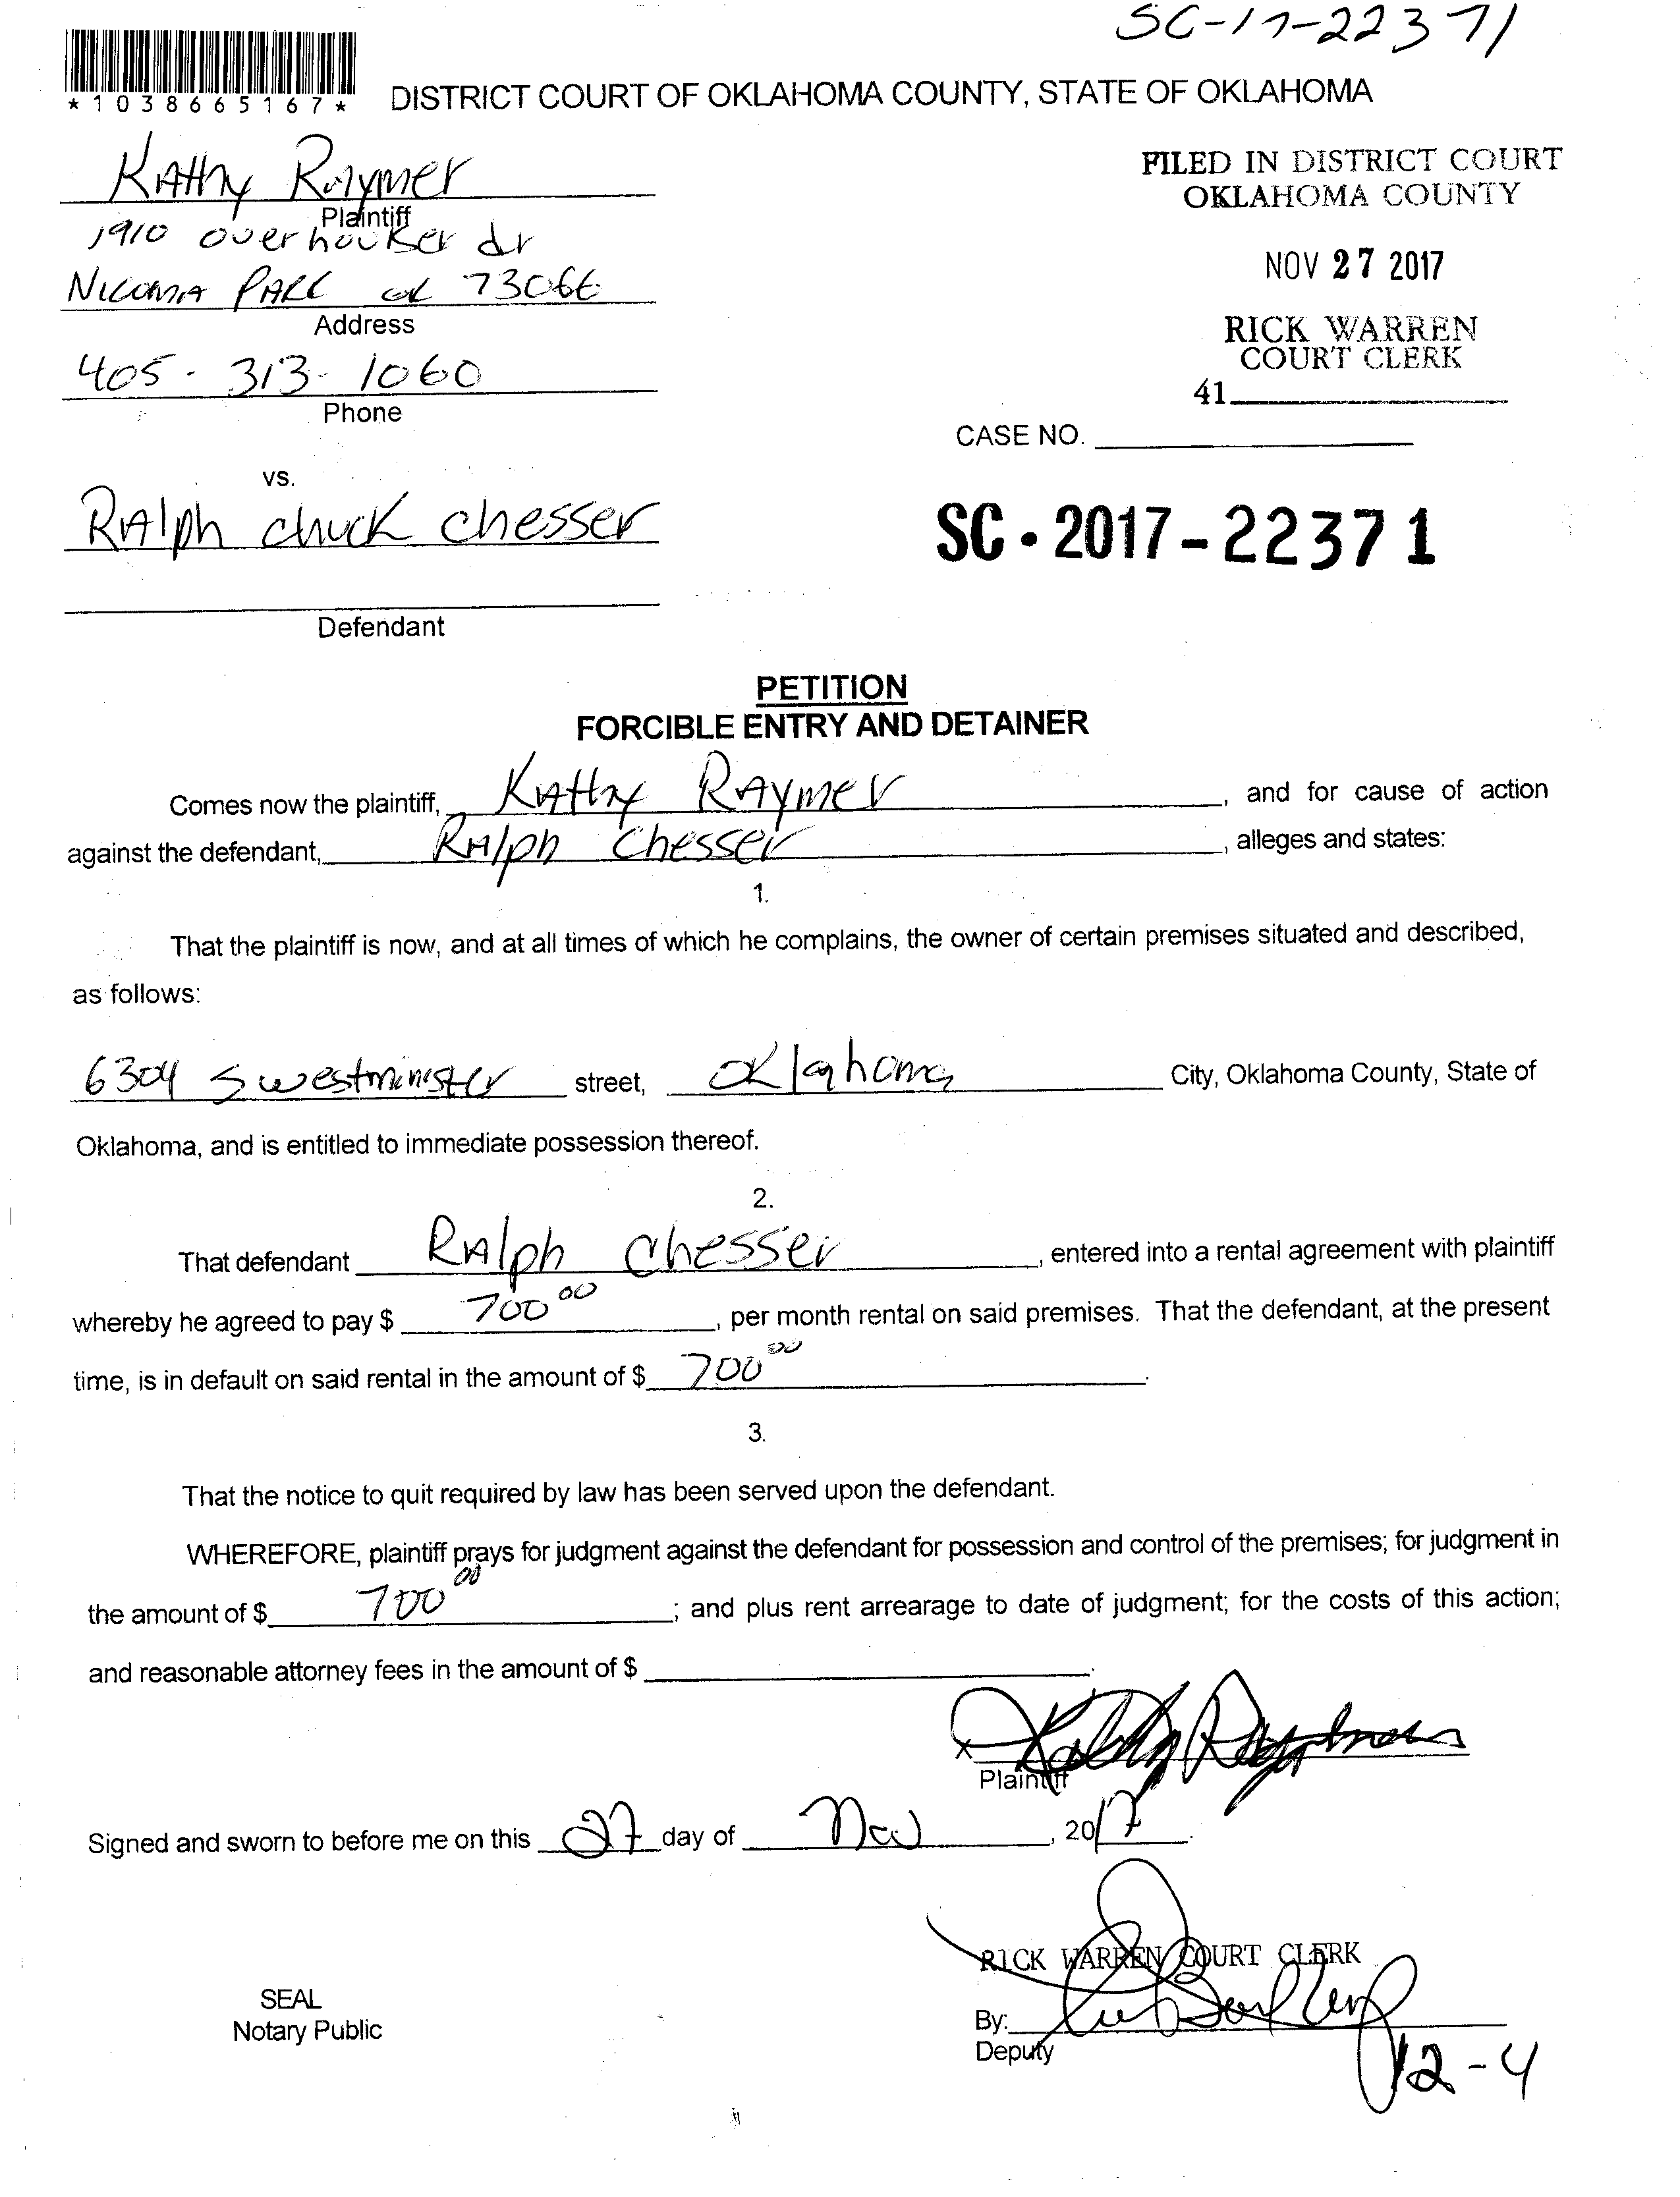 SC-17-22371
*1038665167*
DISTRICT COURT OF OKLAHOMA COUNTY, STATE OF OKLAHOMA
KAthy Raymer
Plaintiff
1910 overhouker dr
Nicoma PARK ok 73066
Address
405-313-1060
Phone
FILED IN DISTRICT COURT
OKLAHOMA COUNTY
NOV 27 2017
RICK WARREN
COURT CLERK
41
CASE NO.
vs.
RAlph chuck chesser
SC-2017-22371
Defendant
PETITION
FORCIBLE ENTRY AND DETAINER
Comes now the plaintiff, KAthy RAymer, and for cause of action
against the defendant, RAlph Chesser, alleges and states:
1.
That the plaintiff is now, and at all times of which he complains, the owner of certain premises situated and described,
as follows:
6304 S westminister street, Oklahoma City, Oklahoma County, State of
Oklahoma, and is entitled to immediate possession thereof.
2.
That defendant RAlph Chesser, entered into a rental agreement with plaintiff
whereby he agreed to pay $ 700 00, per month rental on said premises. That the defendant, at the present
time, is in default on said rental in the amount of $ 700 00.
3.
That the notice to quit required by law has been served upon the defendant.
WHEREFORE, plaintiff prays for judgment against the defendant for possession and control of the premises; for judgment in
the amount of $ 700 00; and plus rent arrearage to date of judgment; for the costs of this action;
and reasonable attorney fees in the amount of $ .
x Kathy Raymer
Plaintiff
Signed and sworn to before me on this 27 day of Nov, 2017.
RICK WARREN COURT CLERK
SEAL
Notary Public
By:
Deputy
12-4